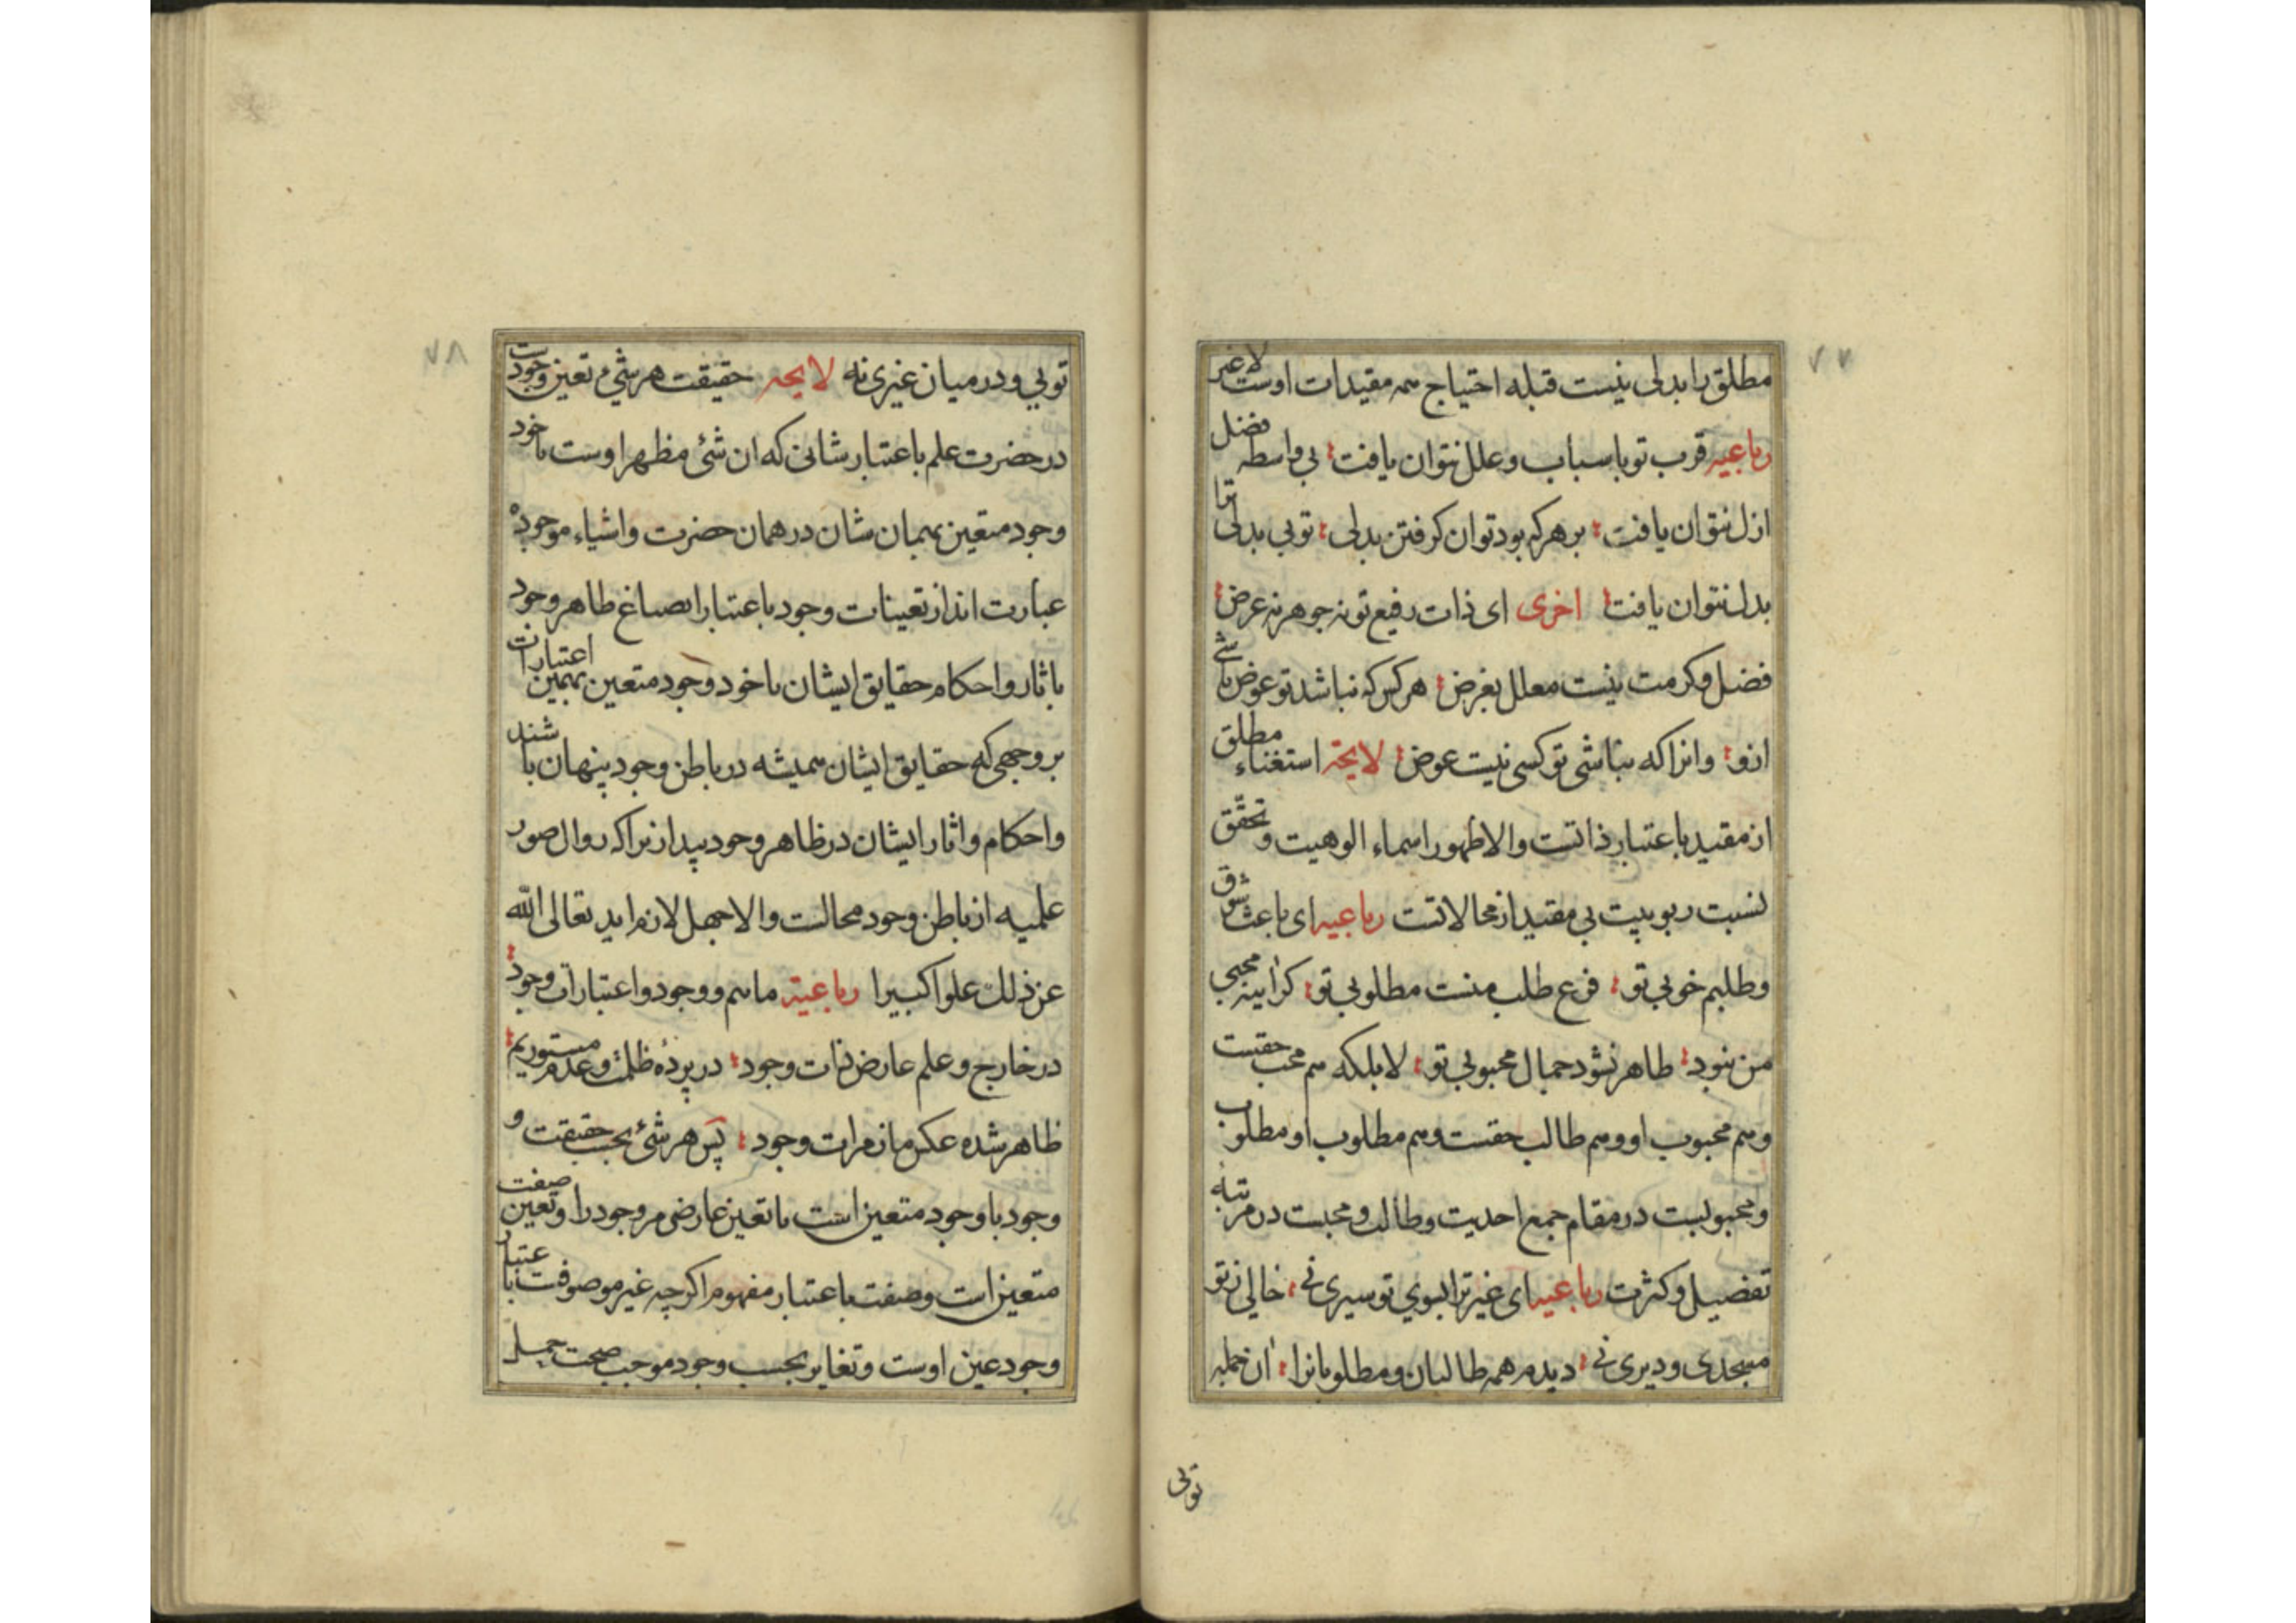 ۷۷
مطلق را بدلی نیست قبله احتیاج همه مقیدات اوست لا غیر
رباعیه قرب تو باسباب و علل نتوان یافت بی واسطه فضل
ازل نتوان یافت بر هر که بود توان کرفتن بدلی تویی بدلی ترا
بدل نتوان یافت اخری ای ذات رفیع تو نه جوهر نه عرض
فضل و کرمت نیست معلل بغرض هر کس که نباشد تو عوض باشی
ازو وانرا که نباشی تو کسی نیست عوض لایحة استغناء مطلق
از مقید باعتبار ذاتست والا ظهور اسماء الوهیت و تحقق
نسبت ربوبیت بی مقید از محالاتست رباعیه ای باعث شوق
و طلبم خوبی تو فرع طلب منست مطلوبی تو کر آینه محبی
من نبود ظاهر نشود جمال محبوبی تو لا بلکه هم محب حقست
و هم محبوب او و هم طالب حقست و هم مطلوب او مطلوب
و محبوبست در مقام جمع احدیت و طالب و محبست در مرتبه
تفضیل و کثرت رباعیه ای غیر ترا بسوی تو سیری نی خالی ز تو
مسجدی و دیری نی دیدم همه طالبان و مطلوبانرا ان جمله
تویی
۷۸
تویی و در میان غیری نه لایحه حقیقت هر شیء تعین وجودست
در حضرت علم باعتبار شانی که ان شئ مظهر اوست یا خود
وجود متعین بهمان شان در همان حضرت واشیاء موجوده
عبارت اند از تعینات وجود باعتبار انصباغ ظاهر وجود
باثار و احکام حقایق ایشان یا خود وجود متعین بهمین اعتبارات
بر وجهی که حقایق ایشان همیشه در باطن وجود پنهان باشند
و احکام و اثار ایشان در ظاهر وجود پیدا زیرا که زوال صور
علمیه از باطن وجود محالست والا جهل لازم اید تعالی الله
عن ذلك علوا کبیرا رباعیة ماییم و وجود و اعتبارات وجود
در خارج و علم عارض ذات وجود در پرده ظلمت و عدم مستوریم
ظاهر شده عکس ما ز مرات وجود پس هر شئ بحسب حقیقت و
وجود یا وجود متعین است یا تعین عارضی مر وجود را و تعین صفت
متعین است و صفت باعتبار مفهوم اکرچه غیر موصوفست باعتبار
وجود عین اوست و تغایر بحسب وجود موجب صحت حمل